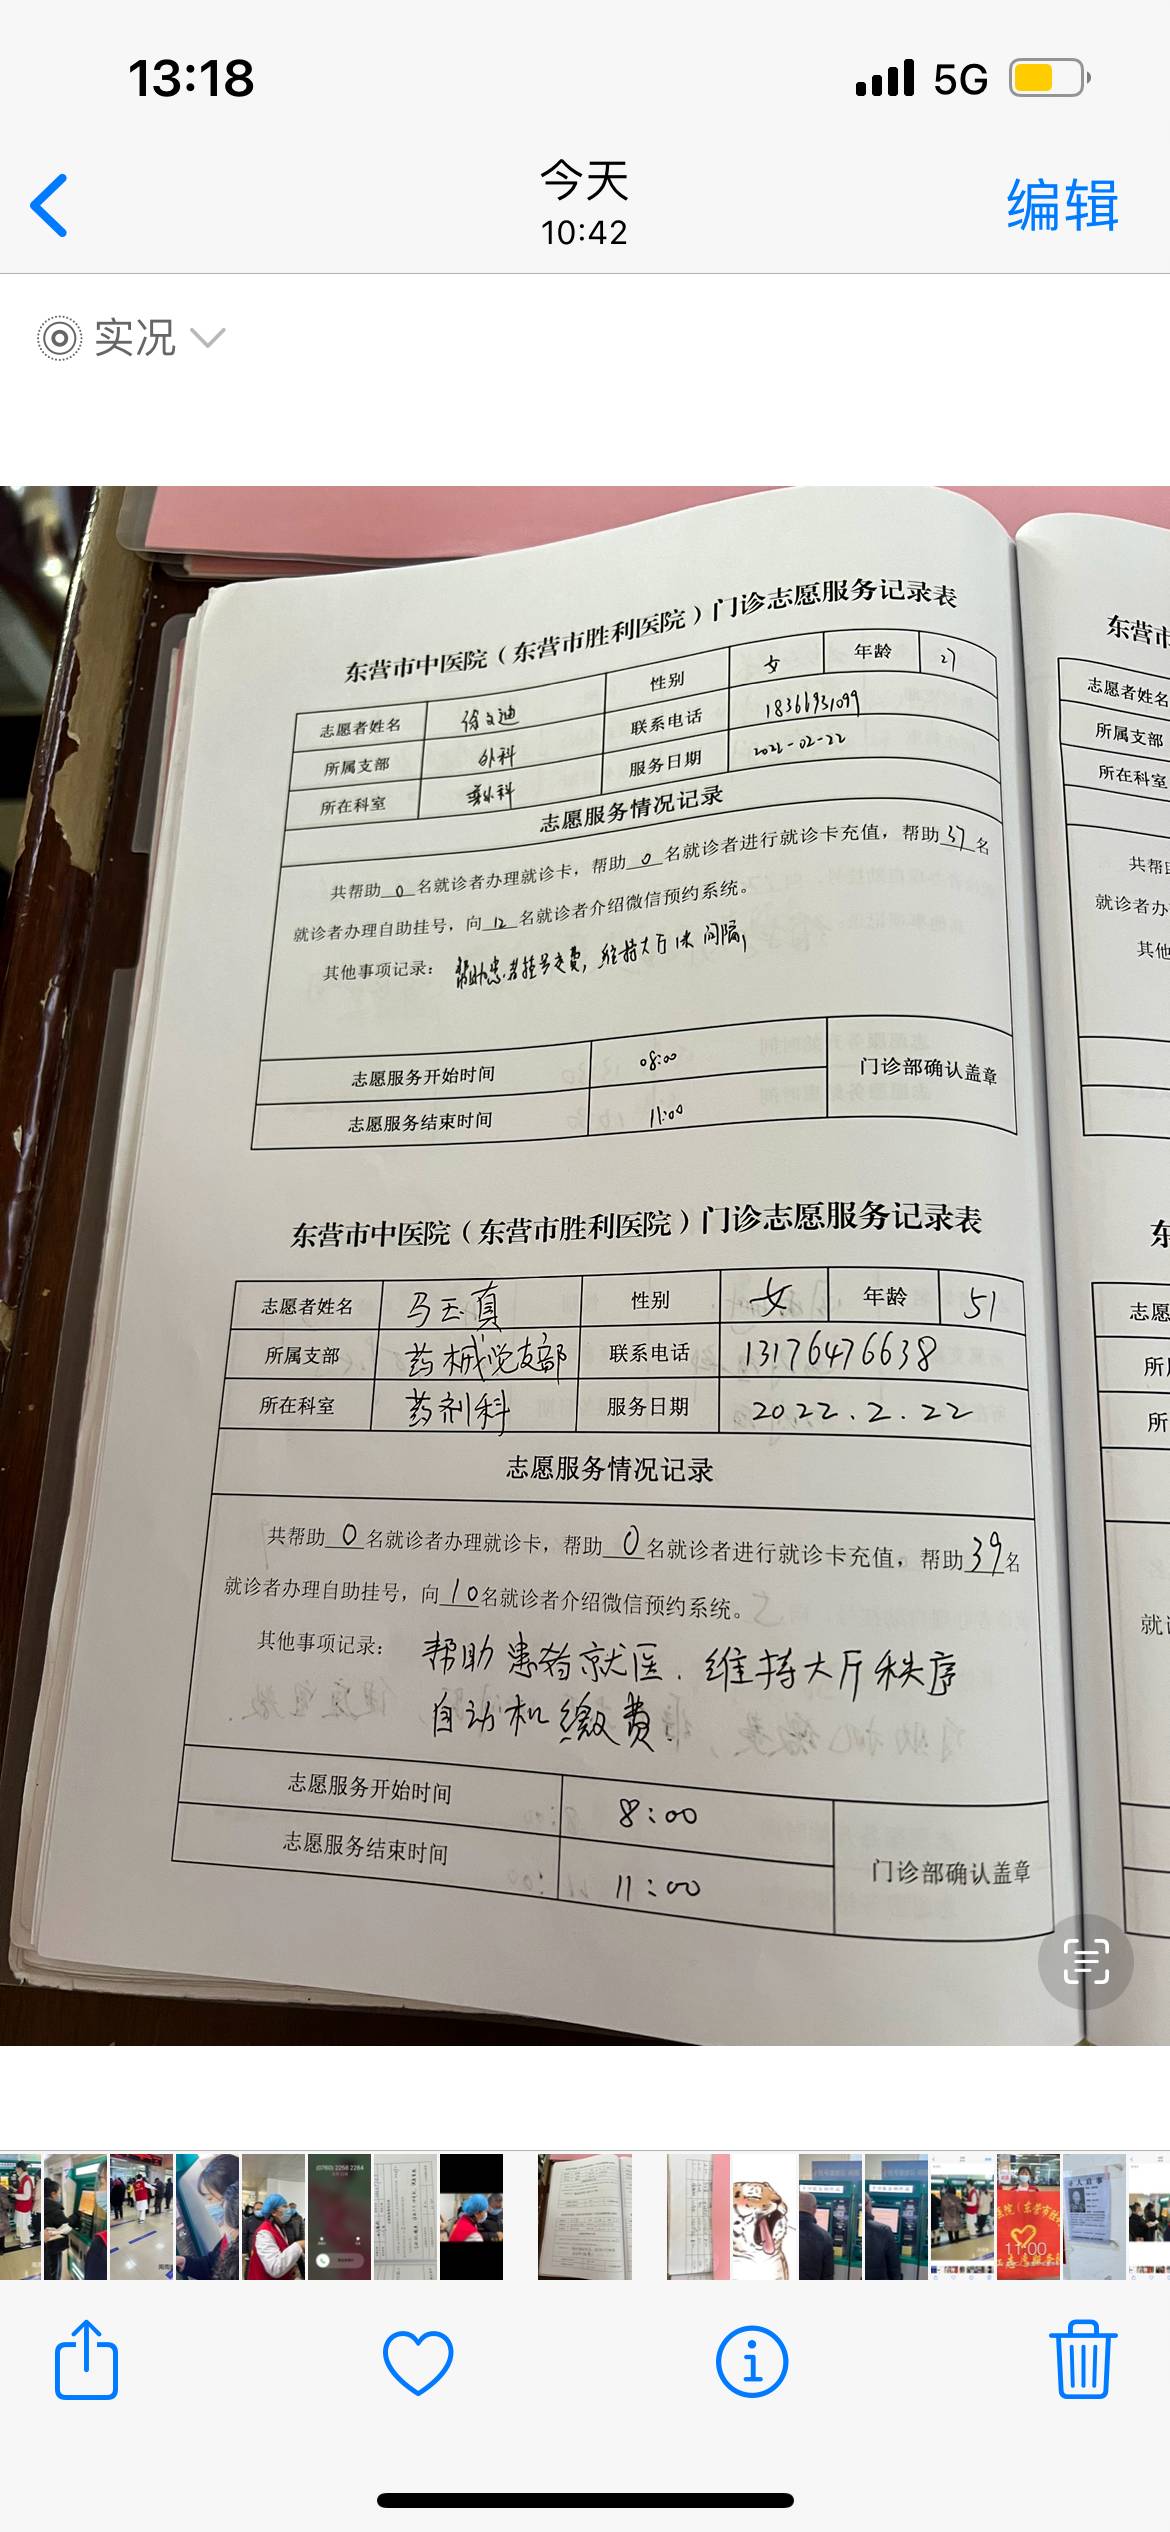 13:18
5G
今天
10:42
编辑
实况
东营市中医院（东营市胜利医院）门诊志愿服务记录表
志愿者姓名 徐文迪 性别 女 年龄 27
所属支部 外科 联系电话 18366931099
所在科室 外科 服务日期 2022-02-22
志愿服务情况记录
共帮助0名就诊者办理就诊卡，帮助0名就诊者进行就诊卡充值，帮助37名
就诊者办理自助挂号，向12名就诊者介绍微信预约系统。
其他事项记录： 帮助患者挂号交费，维持大厅1米间隔，
志愿服务开始时间 08:00
门诊部确认盖章
志愿服务结束时间 11:00
东营市中医院（东营市胜利医院）门诊志愿服务记录表
志愿者姓名 马玉真 性别 女 年龄 51
所属支部 药械党支部 联系电话 13176476638
所在科室 药剂科 服务日期 2022.2.22
志愿服务情况记录
共帮助0名就诊者办理就诊卡，帮助0名就诊者进行就诊卡充值，帮助39名
就诊者办理自助挂号，向10名就诊者介绍微信预约系统。
其他事项记录： 帮助患者就医．维持大厅秩序
自动机缴费．
志愿服务开始时间 8:00
志愿服务结束时间 11:00
门诊部确认盖章
东营市
志愿者姓名
所属支部
所在科室
共帮
就诊者办
其他
东
志愿
所
所
就